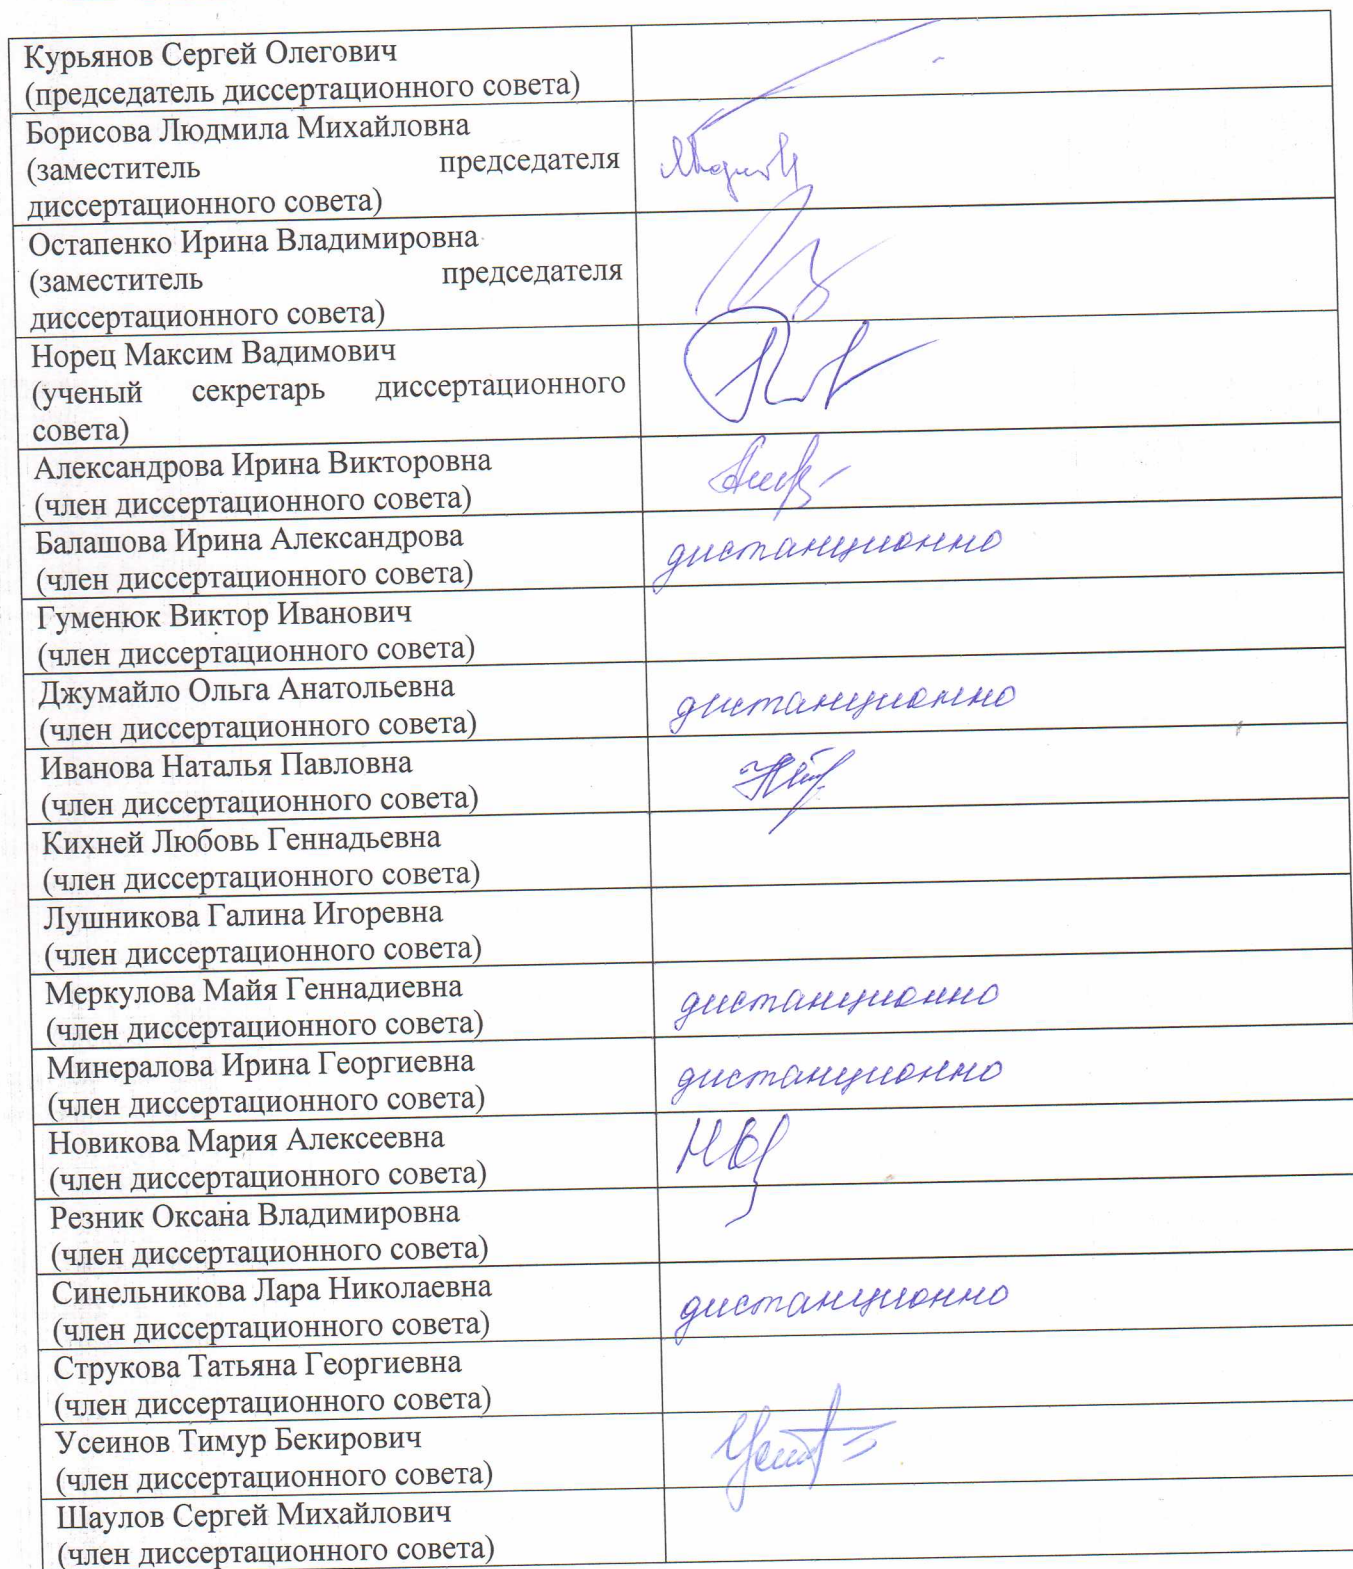 Курьянов Сергей Олегович
(председатель диссертационного совета)
Борисова Людмила Михайловна
(заместитель председателя
диссертационного совета)
Остапенко Ирина Владимировна
(заместитель председателя
диссертационного совета)
Норец Максим Вадимович
(ученый секретарь диссертационного
совета)
Александрова Ирина Викторовна
(член диссертационного совета)
Балашова Ирина Александрова
(член диссертационного совета)
дистанционно
Гуменюк Виктор Иванович
(член диссертационного совета)
Джумайло Ольга Анатольевна
(член диссертационного совета)
дистанционно
Иванова Наталья Павловна
(член диссертационного совета)
Кихней Любовь Геннадьевна
(член диссертационного совета)
Лушникова Галина Игоревна
(член диссертационного совета)
Меркулова Майя Геннадиевна
(член диссертационного совета)
дистанционно
Минералова Ирина Георгиевна
(член диссертационного совета)
дистанционно
Новикова Мария Алексеевна
(член диссертационного совета)
Резник Оксана Владимировна
(член диссертационного совета)
Синельникова Лара Николаевна
(член диссертационного совета)
дистанционно
Струкова Татьяна Георгиевна
(член диссертационного совета)
Усеинов Тимур Бекирович
(член диссертационного совета)
Шаулов Сергей Михайлович
(член диссертационного совета)